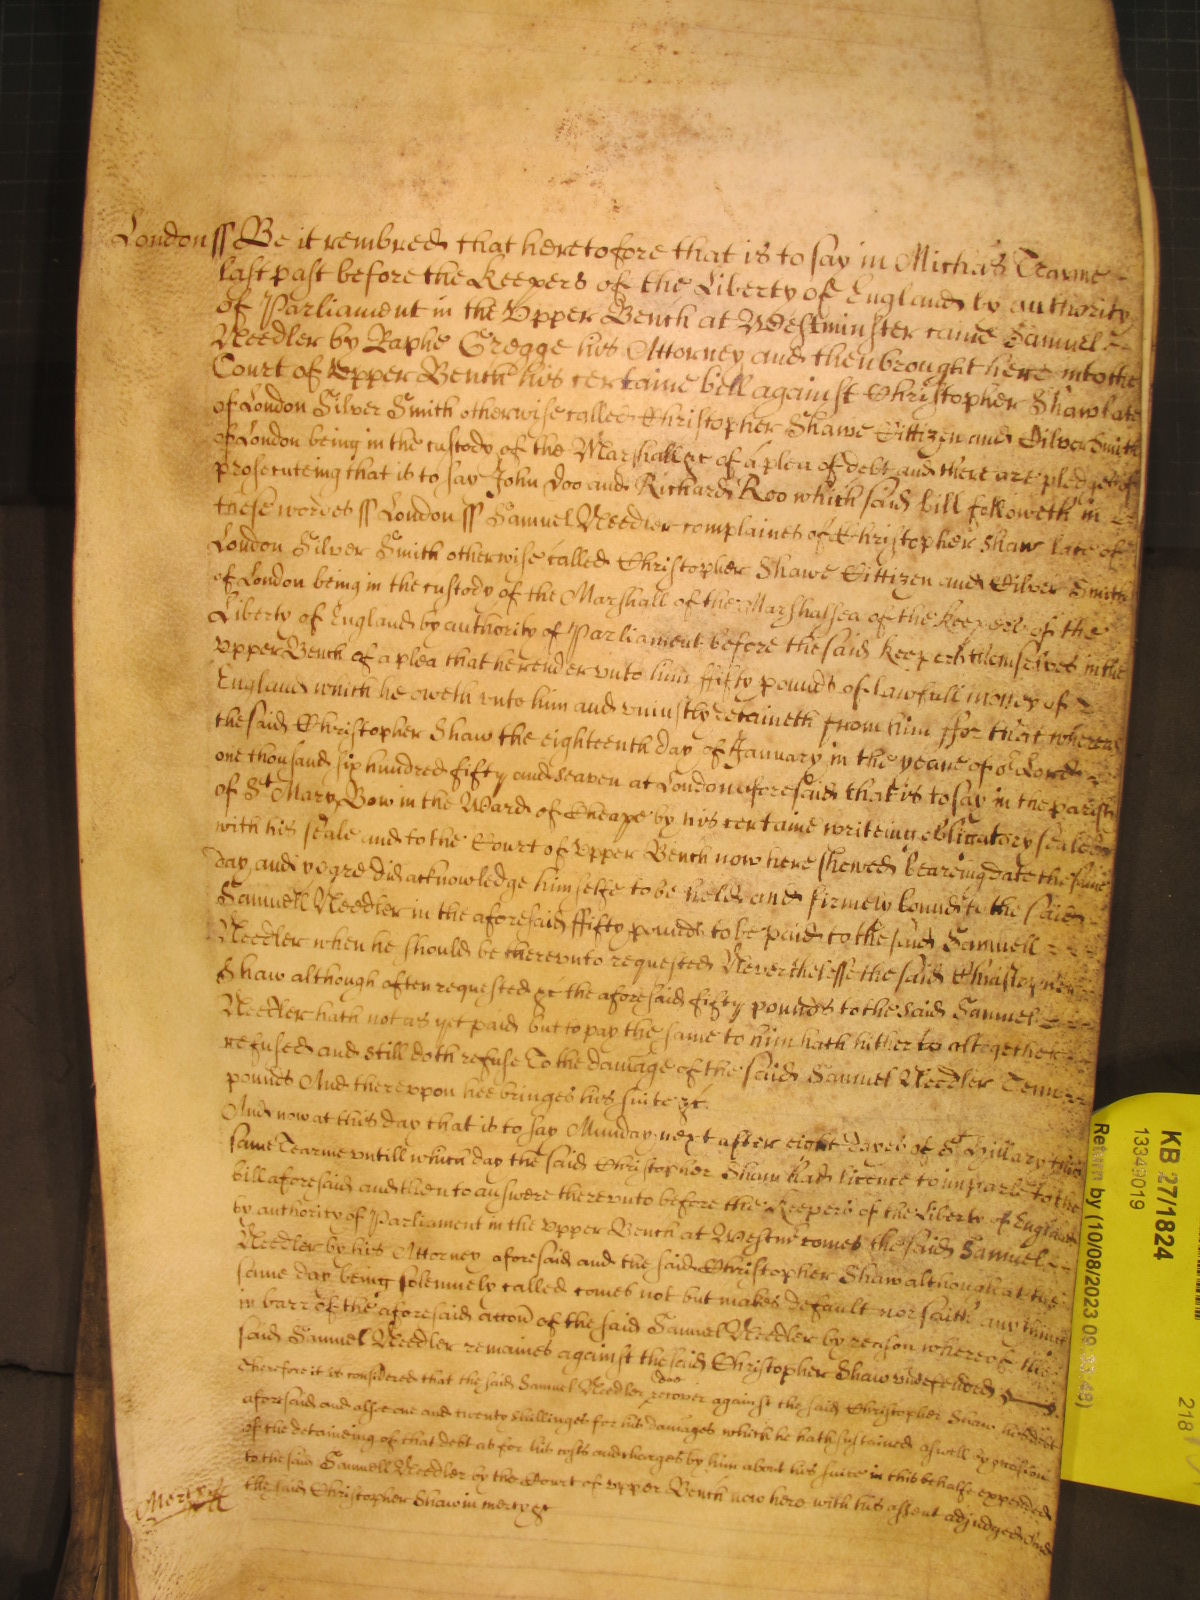 London ss Be it rembred that heretofore that is to say in Michãs Tearme
last past before the Keepers of the Liberty of England by authority
of Parliament in the Vpper Bench at Westminster came Samuel
Needler by Raphe Gregge his Attorney and then brought here into the
Court of Vpper Bench his certaine bill against Christopher Shaw late
of London Silver Smith otherwise called Christopher Shawe Cittizen and Silver Smith
of London being in the custody of the Marshall &c of a plea of debt and there are pledges of
prosecuteing that is to say John Doo and Richard Roo which said bill followeth in
these wordes ss London ss Samuel Needler complaines of Christopher Shaw late of
London Silver Smith otherwise called Christopher Shawe Cittizen and Silver Smith
of London being in the custody of the Marshall of the Marshalsea of the keepers of the
Liberty of England by authority of Parliament before the said keepers themselves in the
Vpper Bench of a plea that he render vnto him fifty pounds of lawfull money of
England which he oweth vnto him and vniustly detaineth from him ffor that whereas
the said Christopher Shaw the eighteenth day of January in the yeare of or Lord
one thousand six hundred fifty and seaven at London aforesaid that is to say in the parish
of St Mary Bow in the Ward of Cheape by his certaine writeing obligatory sealed
with his seale and to the Court of Vpper Bench now here shewed beareing date the same
day and yeare did acknowledge himselfe to be held and firmely bound to the said
Samuell Needler in the aforesaid ffifty pounds to be paid to the said Samuell
Needler when he should be therevnto requested Neverthelesse the said Christopher
Shaw although often requested &c the aforesaid fifty pounds to the said Samuel
Needler hath not as yet paid but to pay the same to him hath hitherto altogether
refused and still doth refuse To the damage of the said Samuel Needler Tenn
pounds And therevpon hee bringes his suite &c.
And now at this day that is to say Munday next after eight dayes of St Hillary this
same Tearme vntill which day the said Christopher Shaw had licence to imparle to the
bill aforesaid and then to answere therevnto before the Keepers of the Liberty of England
by authority of Parliament in the Vpper Bench at Westmr comes the said Samuel
Needler by his Attorney aforesaid and the said Christopher Shaw although at the
same day being solemnely called comes not but makes default nor saith any thing
in barr of the aforesaid accon of the said Samuel Needler by reason whereof the
said Samuel Needler remaines against the said Christopher Shaw vndefended
Therefore it is considered that the said Samuel Needler doe recover against the said Christopher Shaw his debt
aforesaid and alsoe one and twenty shillinges for his damages which he hath sustained aswell by occasion
of the detaineing of that debt as for his costs and charges by him about his suite in this behalfe expended
to the said Samuell Needler by the Court of Vpper Bench now here with his assent adjudged And
the said Christopher Shaw in mercy &c
Mercy
KB 27/1824
13349019
Return by (10/08/2023
218